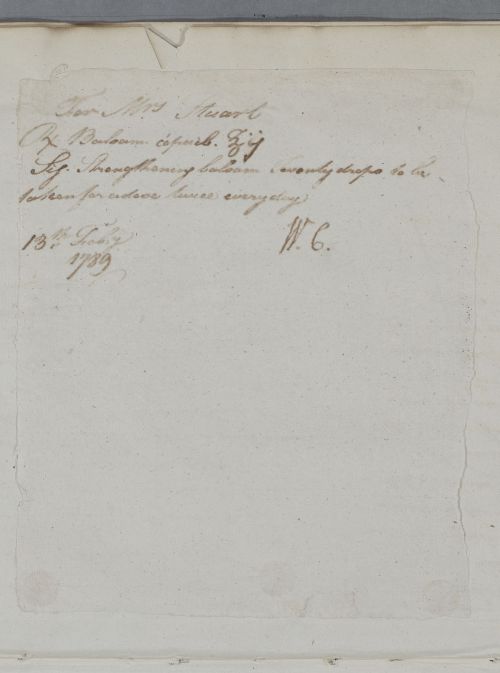 For Mrs Stuart
℞ Balsam. copaib. ℥ij
Sig. Strengthening balsam Twenty drops to be
taken for a dose twice every day
13th Feby W. C.
1789